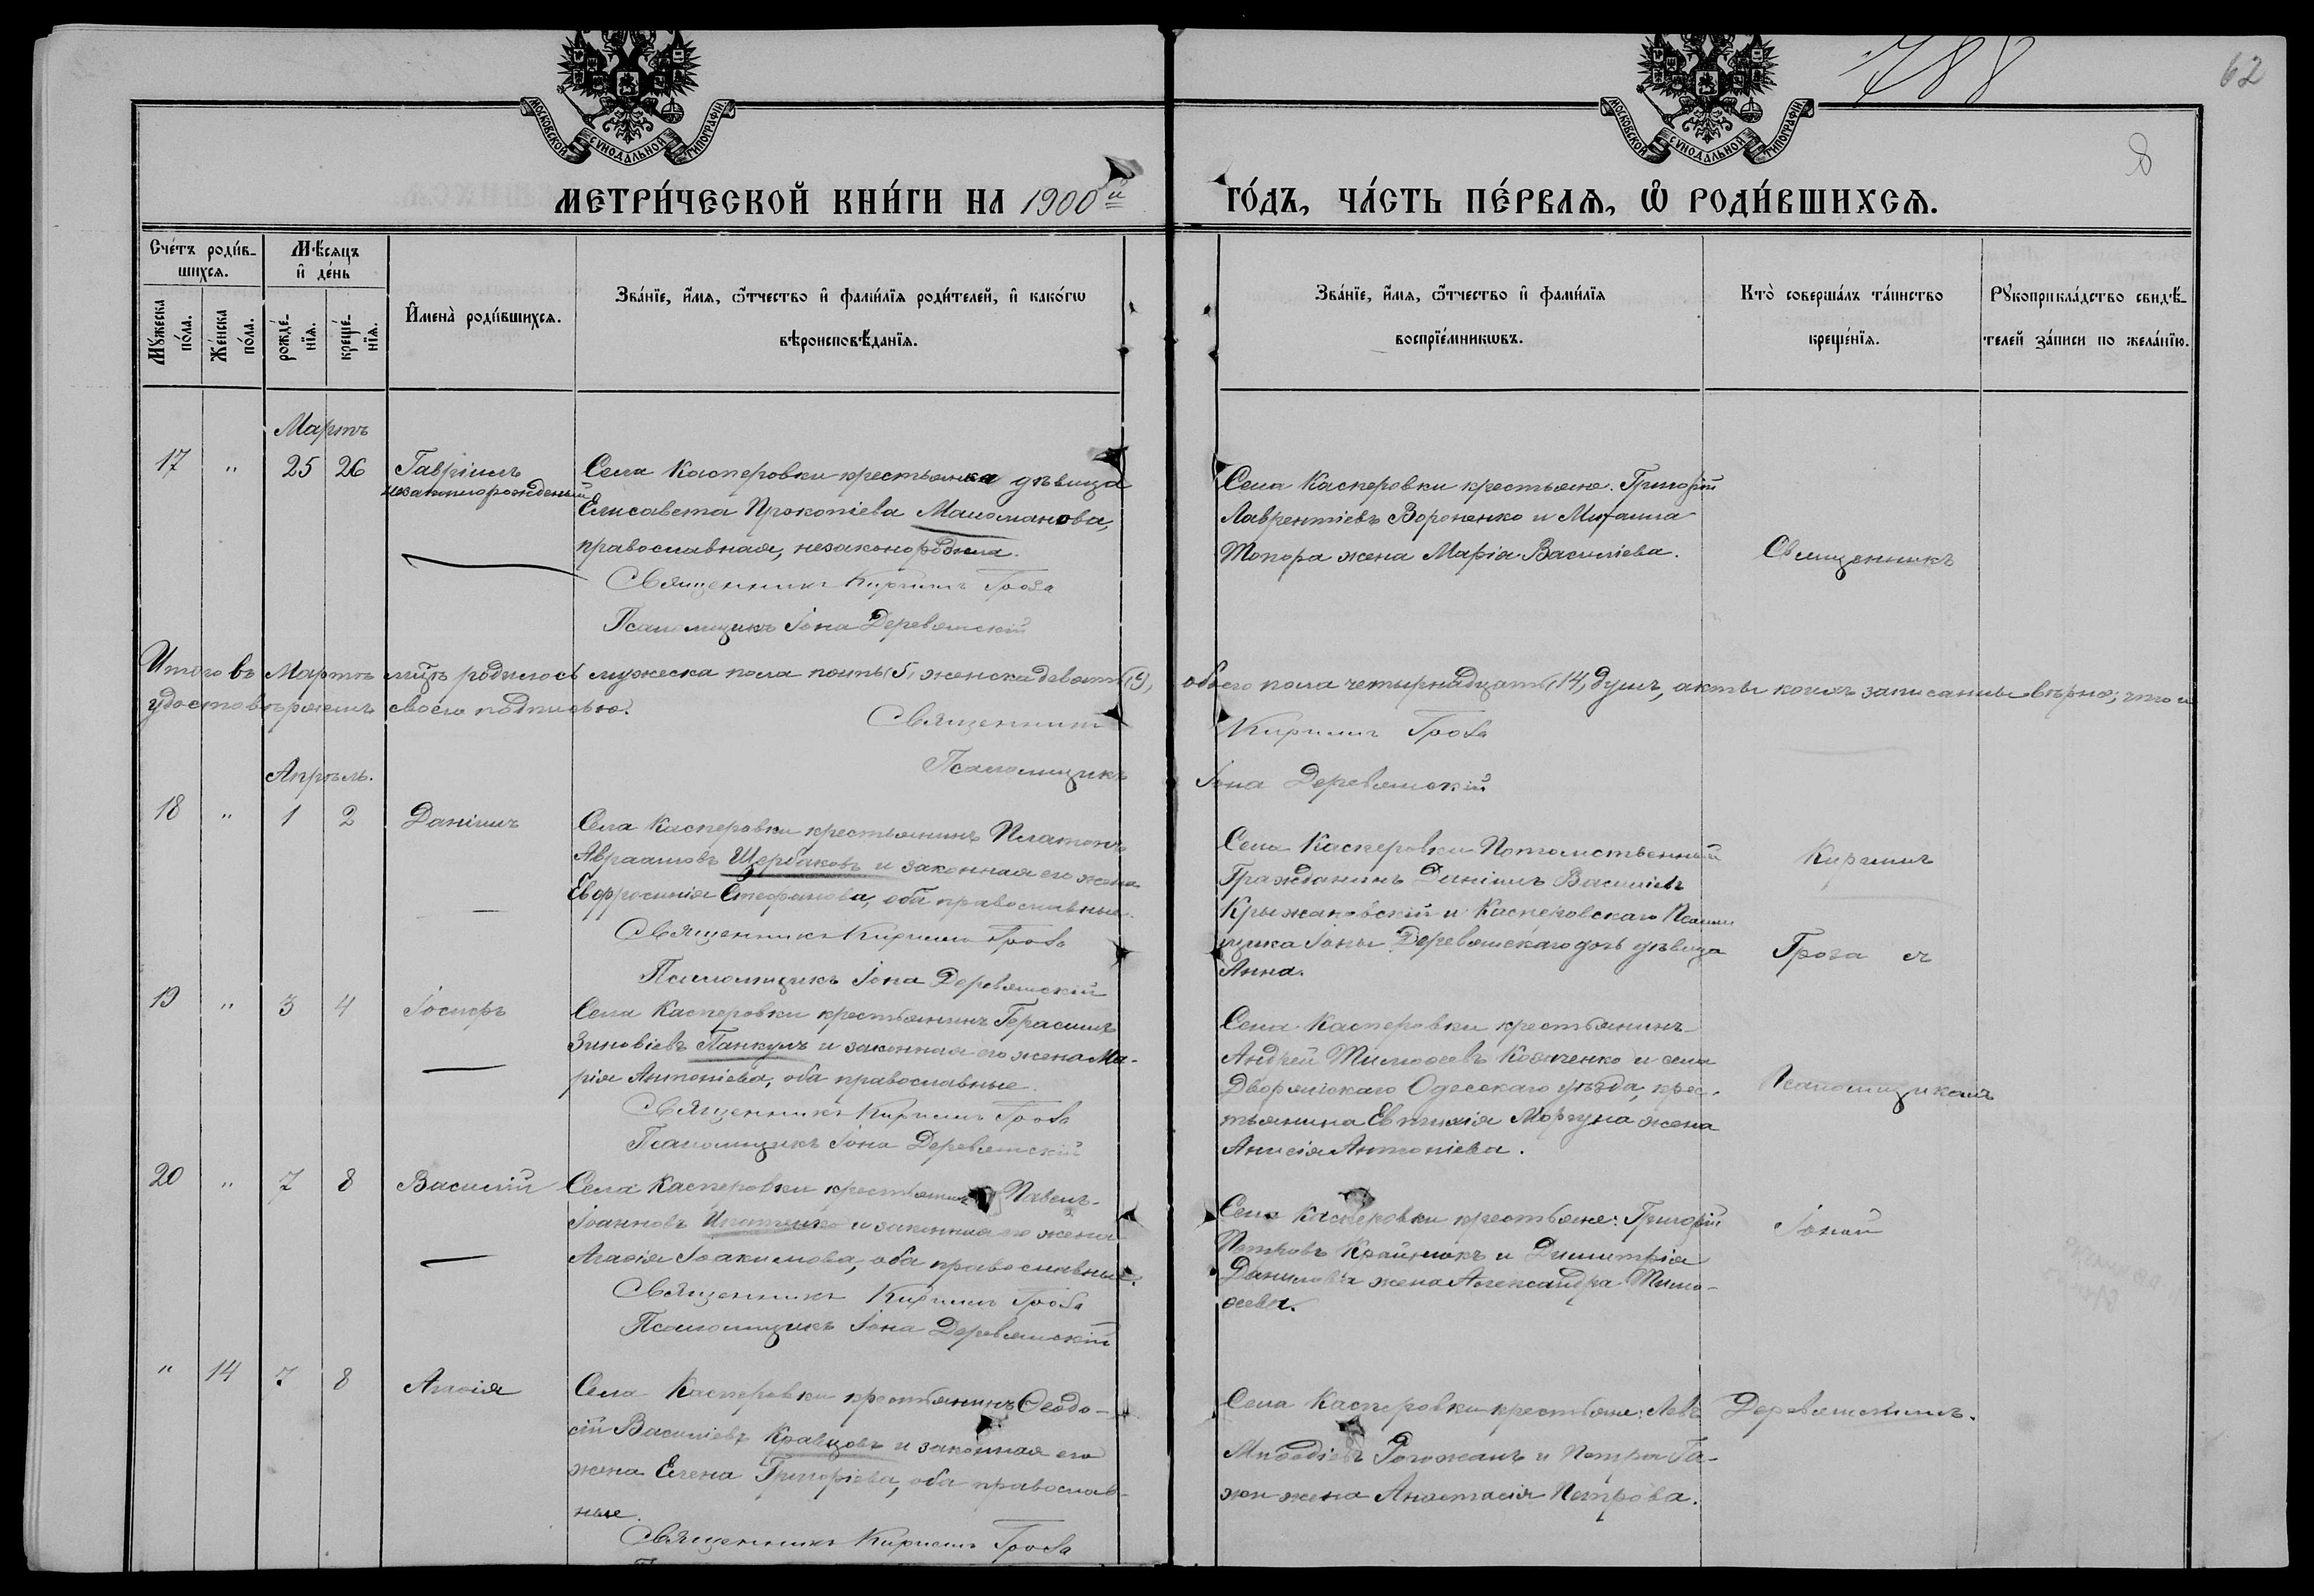 788
62
8
МОСКОВСКОЙ СУНОДАЛЬНОЙ ТИПОГРАФІИ
МОСКОВСКОЙ СУНОДАЛЬНОЙ ТИПОГРАФІИ
МЕТРИ́ЧЕСКОЙ КНИ́ГИ НА 1900й ГО́ДЪ, ЧА́СТЬ ПЕ́РВАѦ, Ѡ҆ РОДИ́ВШИХСѦ.
Сче́тъ роди́в-
шихсѧ.
Мѣ́сѧцъ
и҆ де́нь
Мꙋ́жеска
по́ла.
Же́нска
по́ла.
рожде́-
нїѧ.
креще́-
нїѧ.
И҆мена̀ роди́вшихсѧ.
Зва́нїе, и҆́мѧ, ѻ҆́тчество и҆ фами́лїѧ роди́телей, и҆ како́гѡ
вѣроисповѣ́данїѧ.
Зва́нїе, и҆́мѧ, ѻ҆́тчество и҆ фами́лїѧ
воспрїе́мникѡвъ.
Кто̀ соверша́лъ та́инство
креще́нїѧ.
Рꙋкоприкла́дство свидѣ́-
телей за́писи по жела́нїю.
Мартъ
17 " 25 26 Гавріилъ
незаконнорожденный
Села Касперовки крестьянка дѣвица
Елисавета Прокопіева Маломанова,
православная, незаконо
Священникъ Кириллъ Гроза
Псаломщикъ Іона Деревянскій
Села Касперовки крестьяне: Григорій
Лаврентіевъ Вороненко и Михаила
Топора жена Марія Василіева.
Священникъ
Итого въ Мартѣ мцѣ родилось мужеска пола пять (5, женска девять (9), обоего пола четырнадцать (14) душъ, акты коихъ записаны вѣрно; что и
удостовѣряемъ своею подписью.
Священникъ Кириллъ Гроза
Псаломщикъ Іона Деревянскій
Апрѣль.
18 " 1 2 Даніилъ
Села Касперовки крестьянинъ Платонъ
Авраамовъ Щербаковъ и законная его жена
Евфросинія Стефанова, оба православные.
Священникъ Кириллъ Гроза
Псаломщикъ Іона Деревянскій
Села Касперовки Потомственный
Гражданинъ Даніилъ Василіевъ
Крыжановскій и Касперовскаго Псалом
щика Іоны Деревянскаго дочь дѣвица
Анна.
Кириллъ
Гроза съ
19 " 3 4 Іосифъ
Села Касперовки крестьянинъ Герасимъ
Зиновіевъ Панкулъ и законная его жена Ма-
рія Антоніева, оба православные.
Священникъ Кириллъ Гроза
Псаломщикъ Іона Деревянскій
Села Касперовки крестьянинъ
Андрей Тимоѳеевъ Козаченко и села
Дворянскаго Одесскаго уѣзда, крес-
тьянина Евѳимія Моргуна жена
Анисія Антоніева.
Псаломщикомъ
20 " 7 8 Василій
Села Касперовки крестьянинъ Павелъ
Іоанновъ Игнатенко и законная его жена
Агаѳія Іоакимова, оба православные.
Священникъ Кириллъ Гроза
Псаломщикъ Іона Деревянскій
Села Касперовки крестьяне: Григорій
Петровъ Крайнюкъ и Димитрія
Данилова жена Александра Тимо-
ѳеева.
Іоной
" 14 7 8 Агаѳія
Села Касперовки крестьянинъ Ѳеодо-
сій Василіевъ Кравцовъ и законная его
жена Елена Григоріева, оба православ-
ные.
Священникъ Кириллъ Гроза
Села Касперовки крестьяне: Левъ
Меѳодіевъ Рогожанъ и Петра Га-
жи жена Анастасія Петрова.
Деревянскимъ.